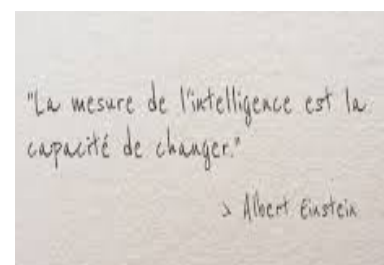 "La mesure de l'intelligence est la
capacité de changer."
> Albert Einstein